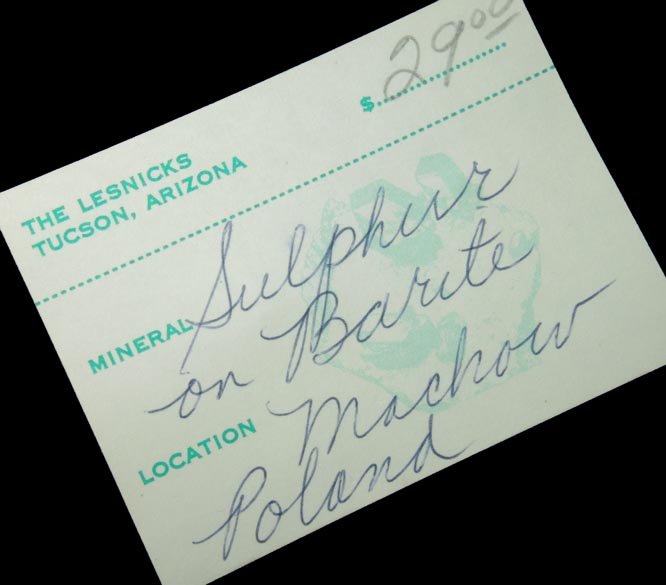 $ 29 00
THE LESNICKS
TUCSON, ARIZONA
MINERAL Sulphur
on Barite
LOCATION Machow
Poland